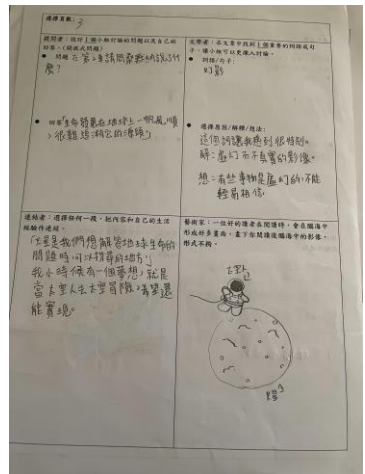 選擇頁數：3
提問者：設計1個小組討論的問題以及自己的
回答。(開放式問題)
● 問題：在第2章請問
麼？
● 回答「生命
，很難
文學者：在文章中找到1個重要的詞語或句
子，讓小組可以更深入討論。
● 詞語/句子：
幻影
● 選擇原因/解釋/想法：
這個詞讓我感到很特別。
解：虛幻而不真實的影像。
想：有些事物是虛幻的，不能
輕易相信。
連結者：選擇任何一段，把內容和自己的生活
經驗作連結。
「太空是我們想解答地球生命的
問題時可以搜尋的地方」
我小時候有一個夢想，就是
當太空人去太空冒險，希望還
能實現。
藝術家：一位好的讀者在閱讀時，會在腦海中
形成好多畫面，畫下你閱讀後腦海中的影像，
形式不拘。
太空人